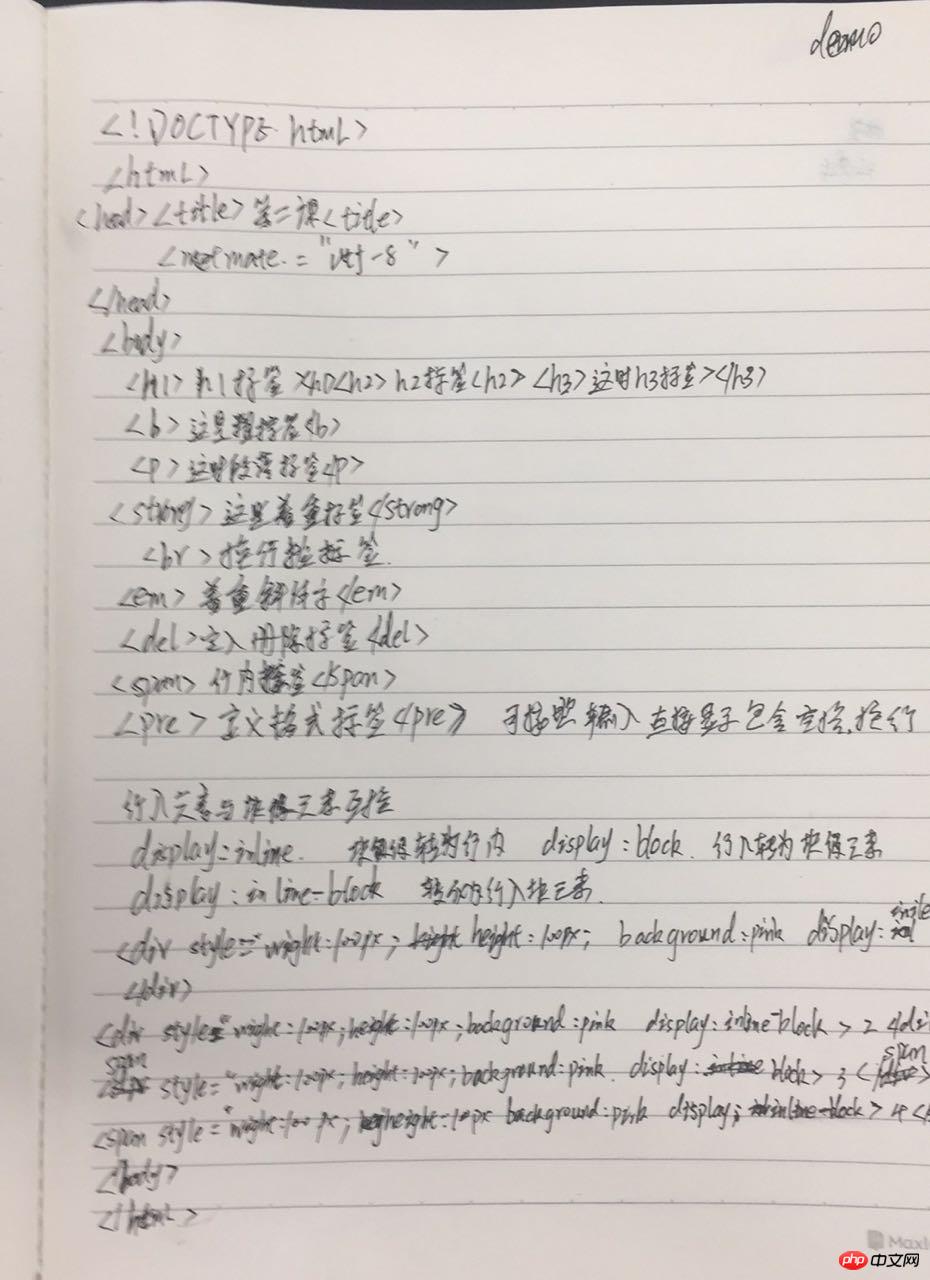 demo
<!DOCTYPE html>
<html>
<head><title>第二课<title>
= "utf-8" >
</head>
<body>
<H1> h1标签 <h2> h2标签<h2> <h3>这时h3标签></h3>
<b>这里 标签<b>
<p>这时段落标签<p>
<strong>这里着重标签</strong>
<br>换行 标签.
<em>着重斜体字</em>
<del>定入删除标签<del>
<span>行内标签</span>
<pre>定义格式标签<pre> 可按照输入直接显示包含空格,换行
行入元素与块级元素互换
display:inline. 块级转为行内 display:block. 行入转为块级元素
display:inline-block 转为行入块元素.
<div style=" wight:100px; height:100px; background:pink display:
</div>
<div style=" wight:100px; height:100px; background:pink display:inline-block > 2 </di
span style="wight:100px; height:100px; background:pink. display: block> 3 </span>
<span style="wight:100px; height:10px background:pink display; inline-block > 4 <
</body>
</html>
php 中文网